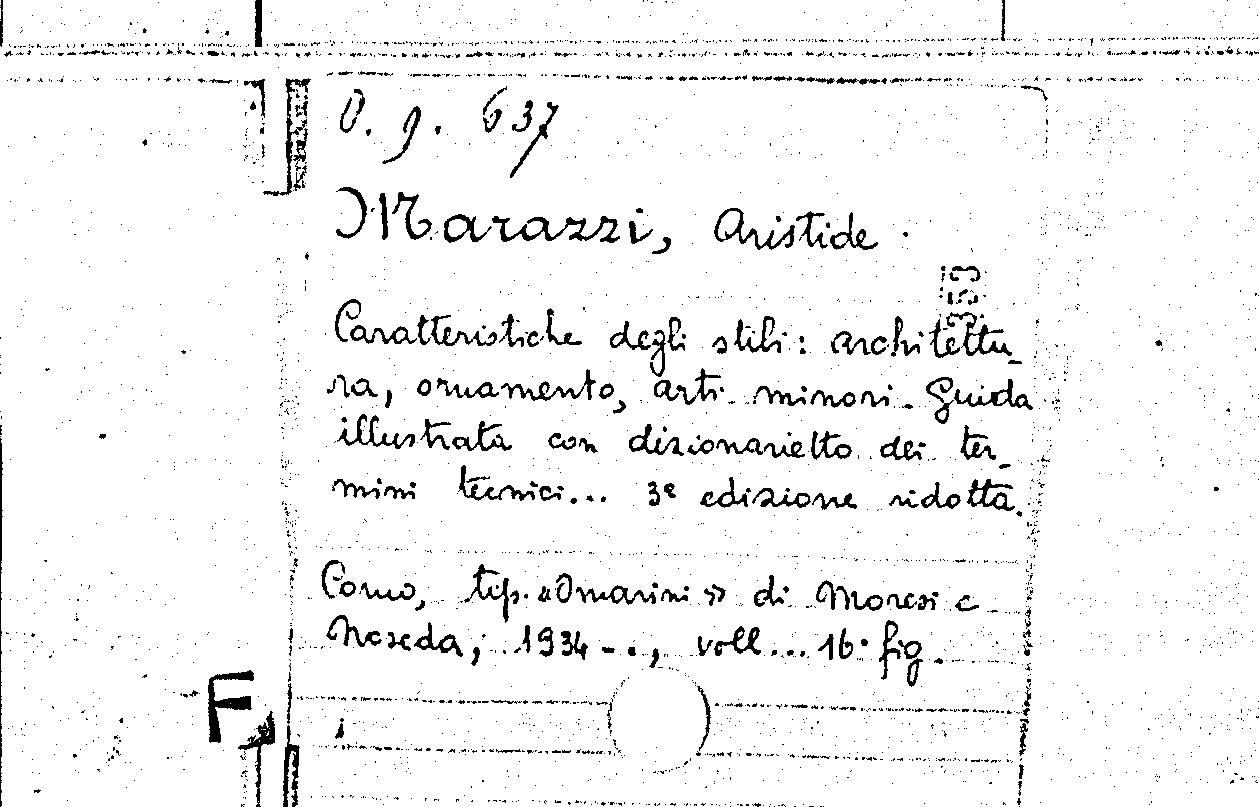 O. g. 637
Marazzi, Aristide.
353
Caratteristiche degli stili: architettu_
ra, ornamento, arti minori. Guida
illustrata con dizionarietto dei ter_
mini tecnici... 3ª edizione ridotta.
Como, tip. «Omarini» di Moresi e
Noseda, 1934 - ., voll... 16° fig.
F